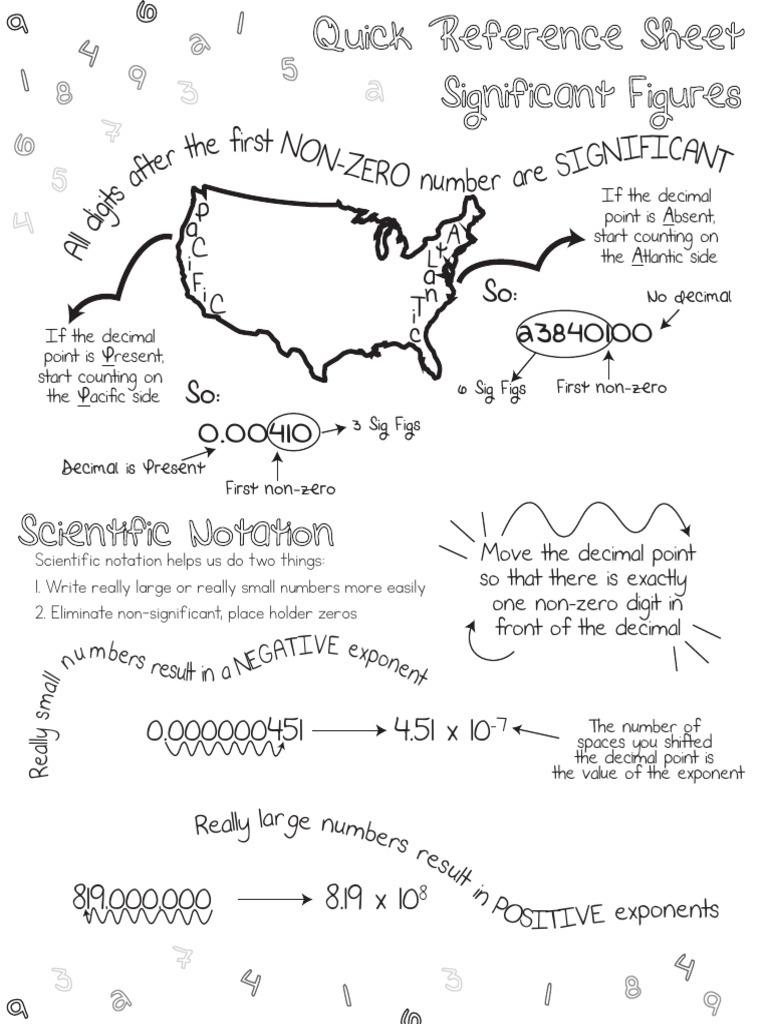 Quick Reference Sheet
Significant Figures
9 6 1 2 4 5
1 8 9 3 2
6 7
5
4
All digits after the first NON-ZERO number are SIGNIFICANT
PaCiFiC
AtLanTiC
If the decimal
point is Absent,
start counting on
the Atlantic side
So:
No decimal
23840100
6 Sig Figs
First non-zero
If the decimal
point is Present,
start counting on
the Pacific side
So:
0.00410
3 Sig Figs
Decimal is Present
First non-zero
Scientific Notation
Scientific notation helps us do two things:
1. Write really large or really small numbers more easily
2. Eliminate non-significant, place holder zeros
Move the decimal point
so that there is exactly
one non-zero digit in
front of the decimal
Really small numbers result in a NEGATIVE exponent
0.000000451
4.51 x 10⁻⁷
The number of
spaces you shifted
the decimal point is
the value of the exponent
Really large numbers result in POSITIVE exponents
819,000,000
8.19 x 10⁸
9 3 2 7 4 1 6 3 1 8 4 9